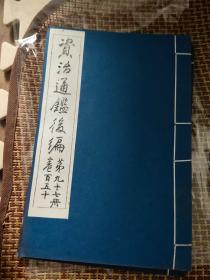 資治通鑑後編
第九十七册
卷百五十